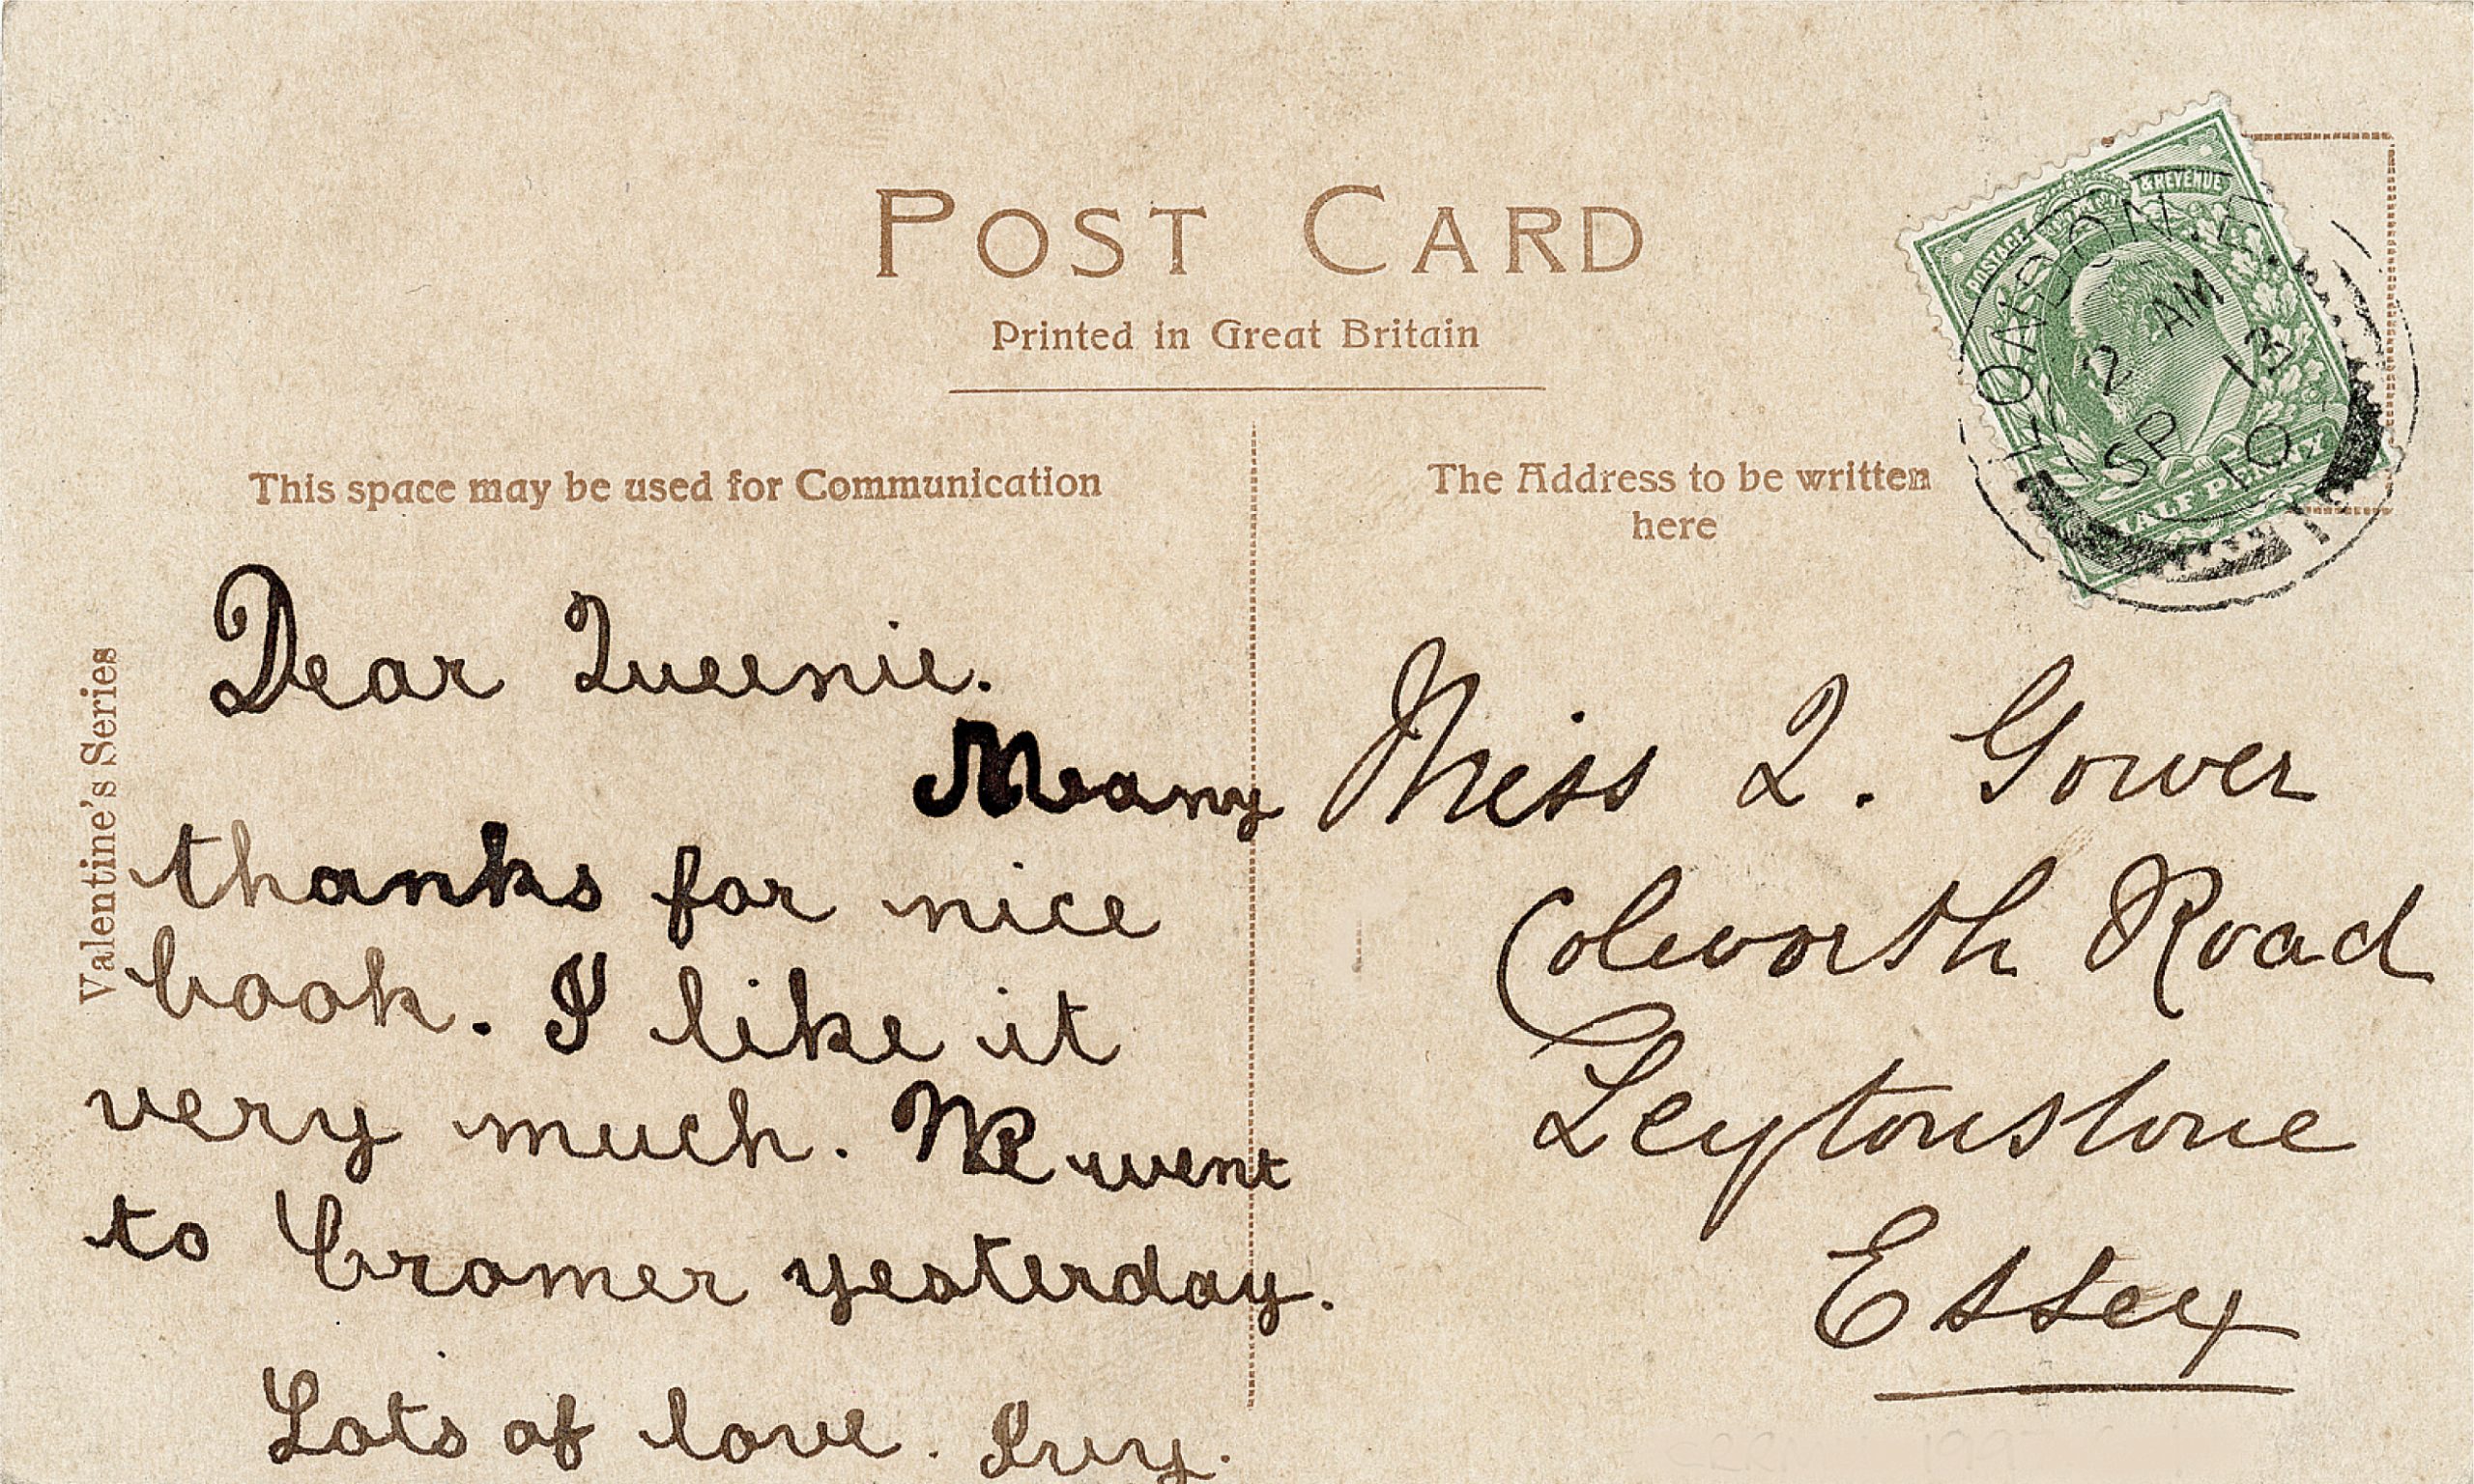 POST CARD
Printed in Great Britain
This space may be used for Communication
The Address to be written
here
Valentine's Series
Dear Queenie.
Many
thanks for nice
book. I like it
very much. We went
to Cromer yesterday.
Lots of love. Ivy.
Miss Q. Gower
Colworth Road
Leytonstone
Essex
POSTAGE & REVENUE
HALF PENNY
LONDON.
2 AM
SP 13
10